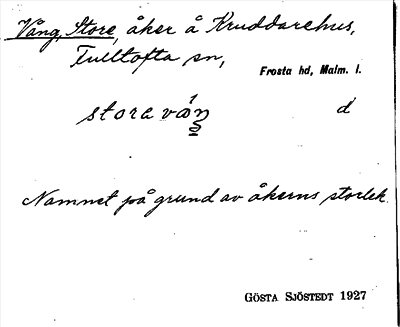 Vång, Store, åker å Kruddarehus,
Fulltofta sn,
Frosta hd, Malm. l.
stora våŋ d
Namnet på grund av åkerns storlek.
GÖSTA SJÖSTEDT 1927